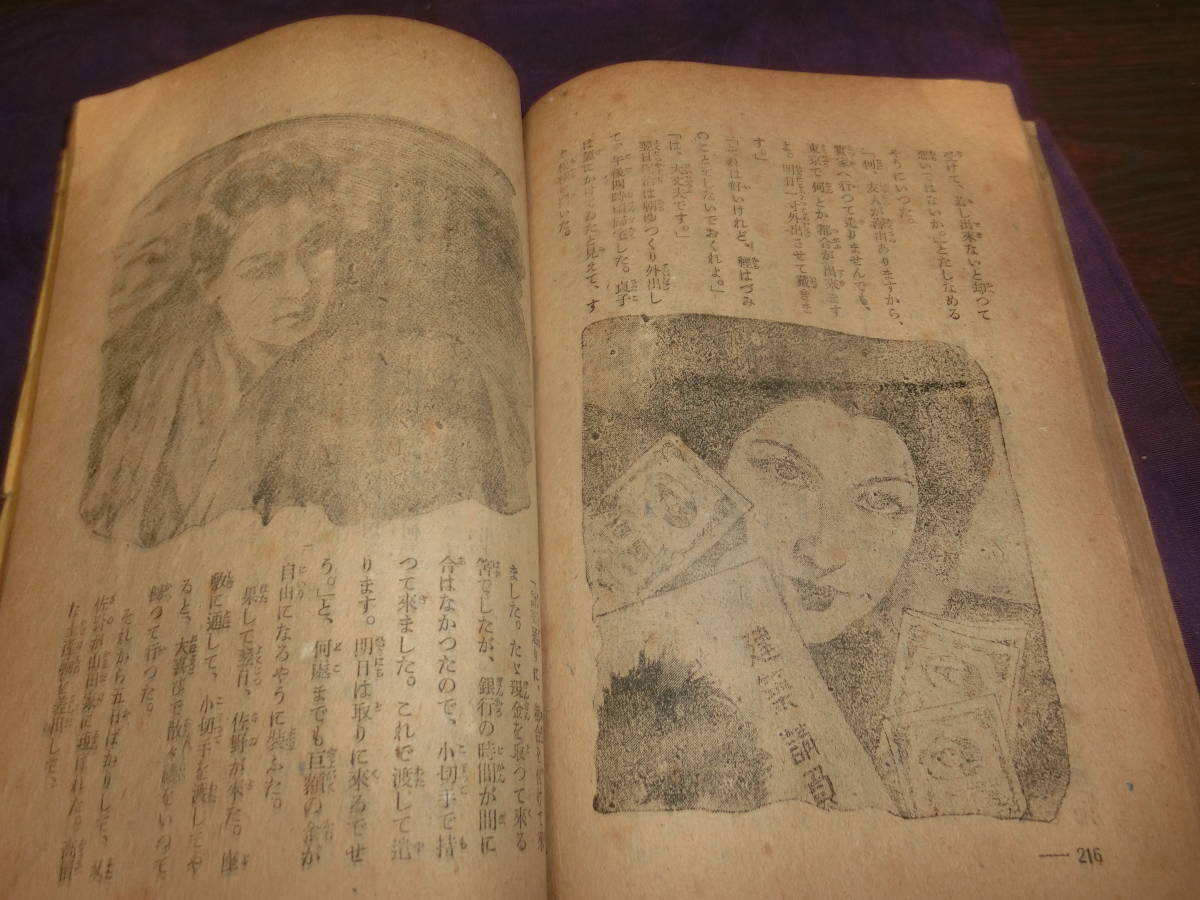 受けて、若し出來ないと却つて
悪いではないか。」とたしなめる
やうにいつた。
「何、友人が澤山ありますから、
實家へ行つて造りませんでも、
東京で何とか都合が出來ます
よ。明日一寸外出させて戴きま
す。」
「それは好いけれど、輕はづみ
のことをしないでおくれよ。」
「は、大丈夫です。」
翌日は朝ゆつくり外出し
て、午後四時頃歸宅した。貞子
は氣にかけてゐたと見えて、す
建築請負
216
ました。たゞ現金を取つて來る
筈でしたが、銀行の時間が間に
合はなかつたので、小切手で持
つて來ました。これを渡して造
ります。明日は取りに來るでせ
う。」と、何處までも巨額の金が
自由になるやうに裝ふた。
果して翌日、佐野が來た。座
敷に通して、小切手を渡してや
ると、大喜びで散々禮をいつて
歸つて行つた。
それから五日ばかりして、
佐野が山田家に現はれた。